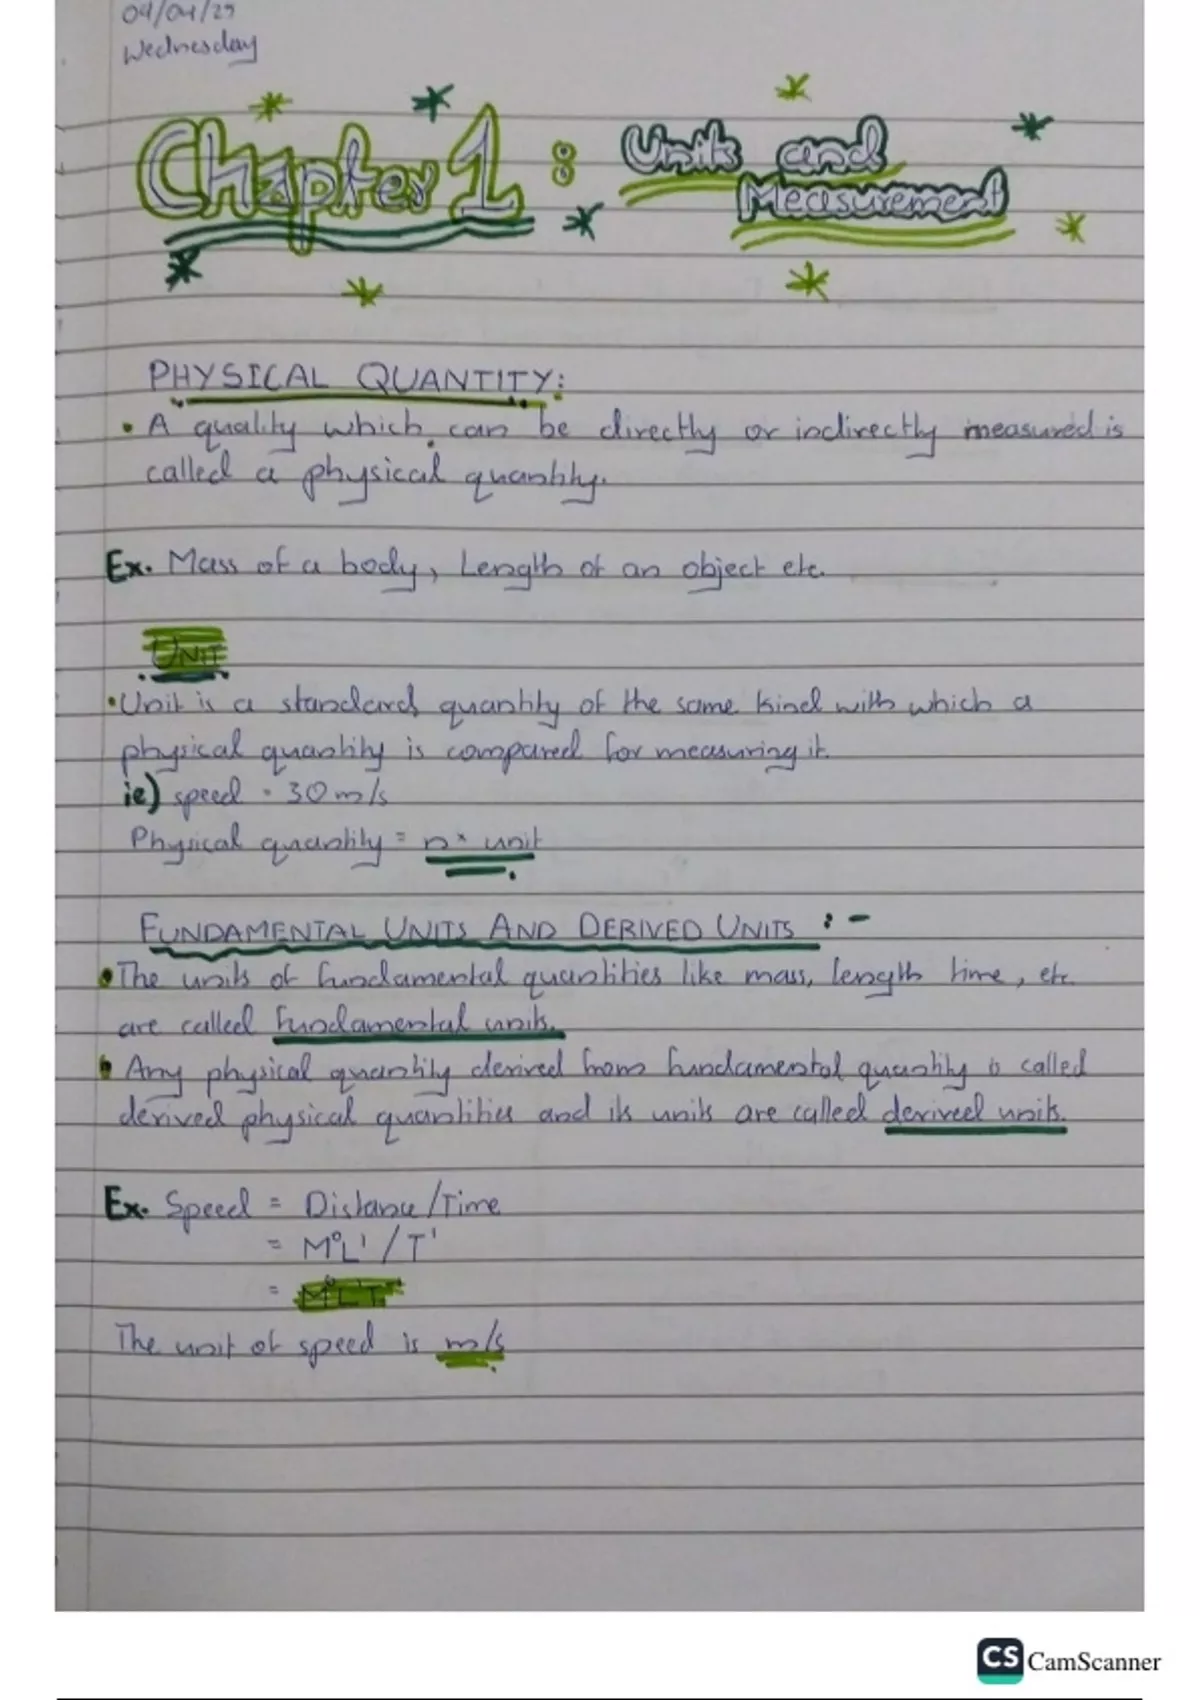 Wednesday
Chapter 1 : Units and
Measurement
PHYSICAL QUANTITY:
• A quality which can be directly or indirectly measured is
called a physical quantity.
Ex. Mass of a body, Length of an object etc.
UNIT
• Unit is a standard quantity of the same kind with which a
physical quantity is compared for measuring it.
ie) speed = 30 m/s
Physical quantity = n × unit
FUNDAMENTAL UNITS AND DERIVED UNITS :-
• The units of fundamental quantities like mass, length time, etc
are called fundamental units.
• Any physical quantity derived from fundamental quantity is called
derived physical quantities and its units are called derived units.
Ex. Speed = Distance/Time
= M⁰L¹/T¹
= M⁰LT⁻¹
The unit of speed is m/s
CS CamScanner